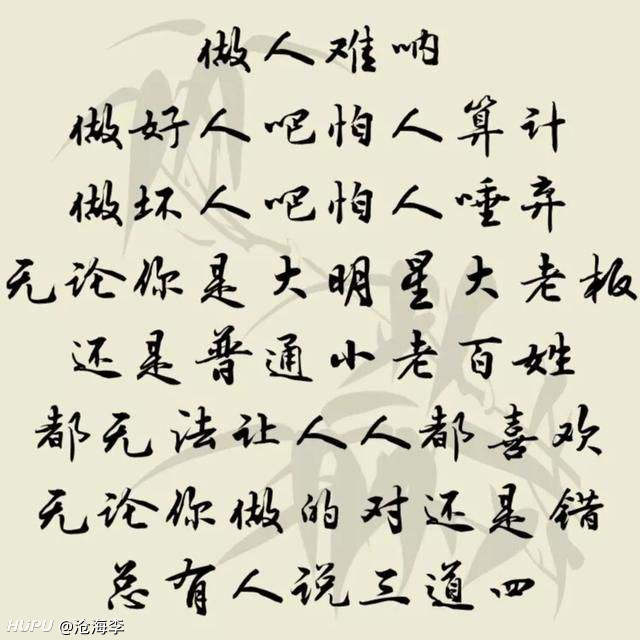 做人难呐
做好人吧怕人算计
做坏人吧怕人唾弃
无论你是大明星大老板
还是普通小老百姓
都无法让人人都喜欢
无论你做的对还是错
总有人说三道四
HUPU @沧海李